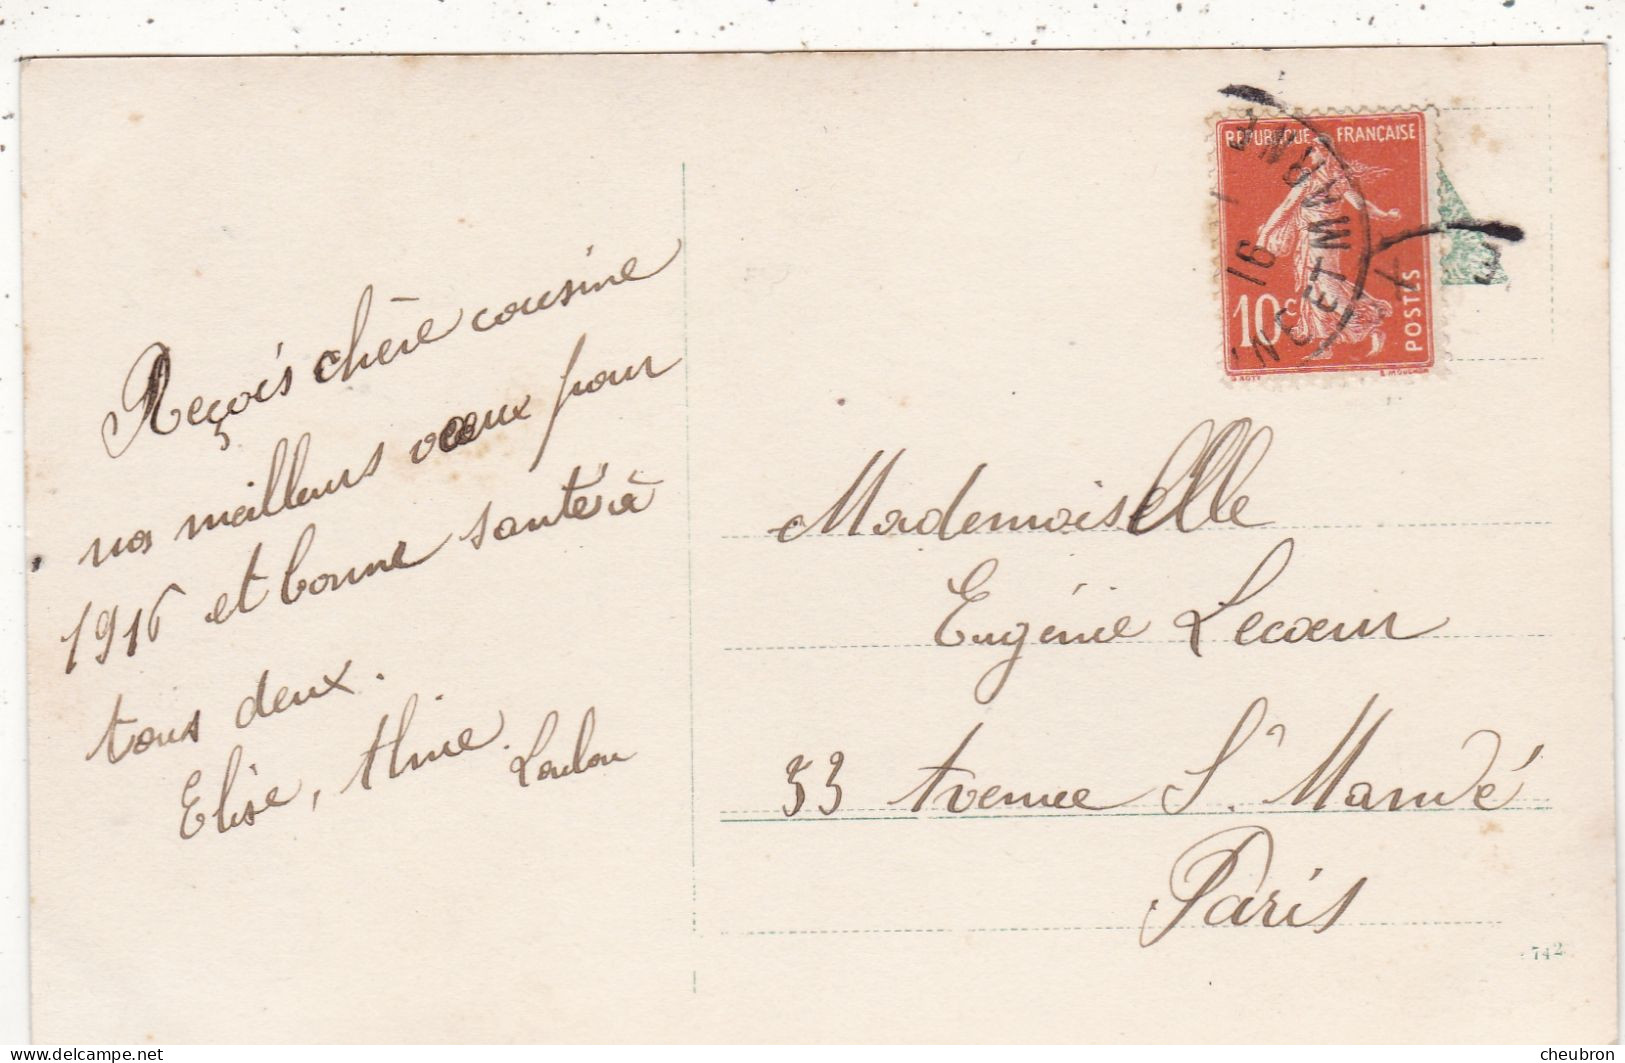 Reçois chère cousine
nos meilleurs voeux pour
1916 et bonne santé à
tous deux.
Elise, Aline.
Loulou
REPUBLIQUE FRANÇAISE
10c
POSTES
NE ET MARNE
16
Mademoiselle
Eugénie Lecoeur
53 Avenue St Mandé
Paris
742
cheubron @ delcampe.net